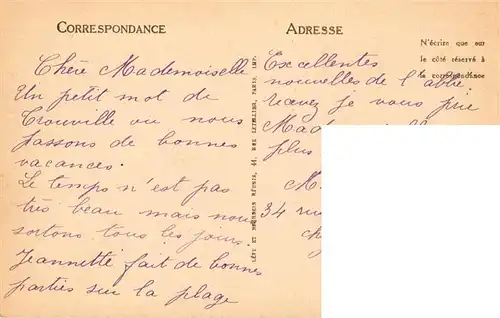 CORRESPONDANCE
Chère Mademoiselle
Un petit mot de
Trouville ou nous
passons de bonnes
vacances.
Le temps n'est pas
très beau mais nous
sortons tous les jours.
Jeannette fait de bonnes
parties sur la plage
LÉVY ET NEURDEIN RÉUNIS, 44, RUE LETELLIER, PARIS. IMP.
ADRESSE
N'écrire que sur
le côté réservé à
la correspondance
Excellentes
nouvelles de l'abbé.
recevez je vous prie
plus
M.
34 rue